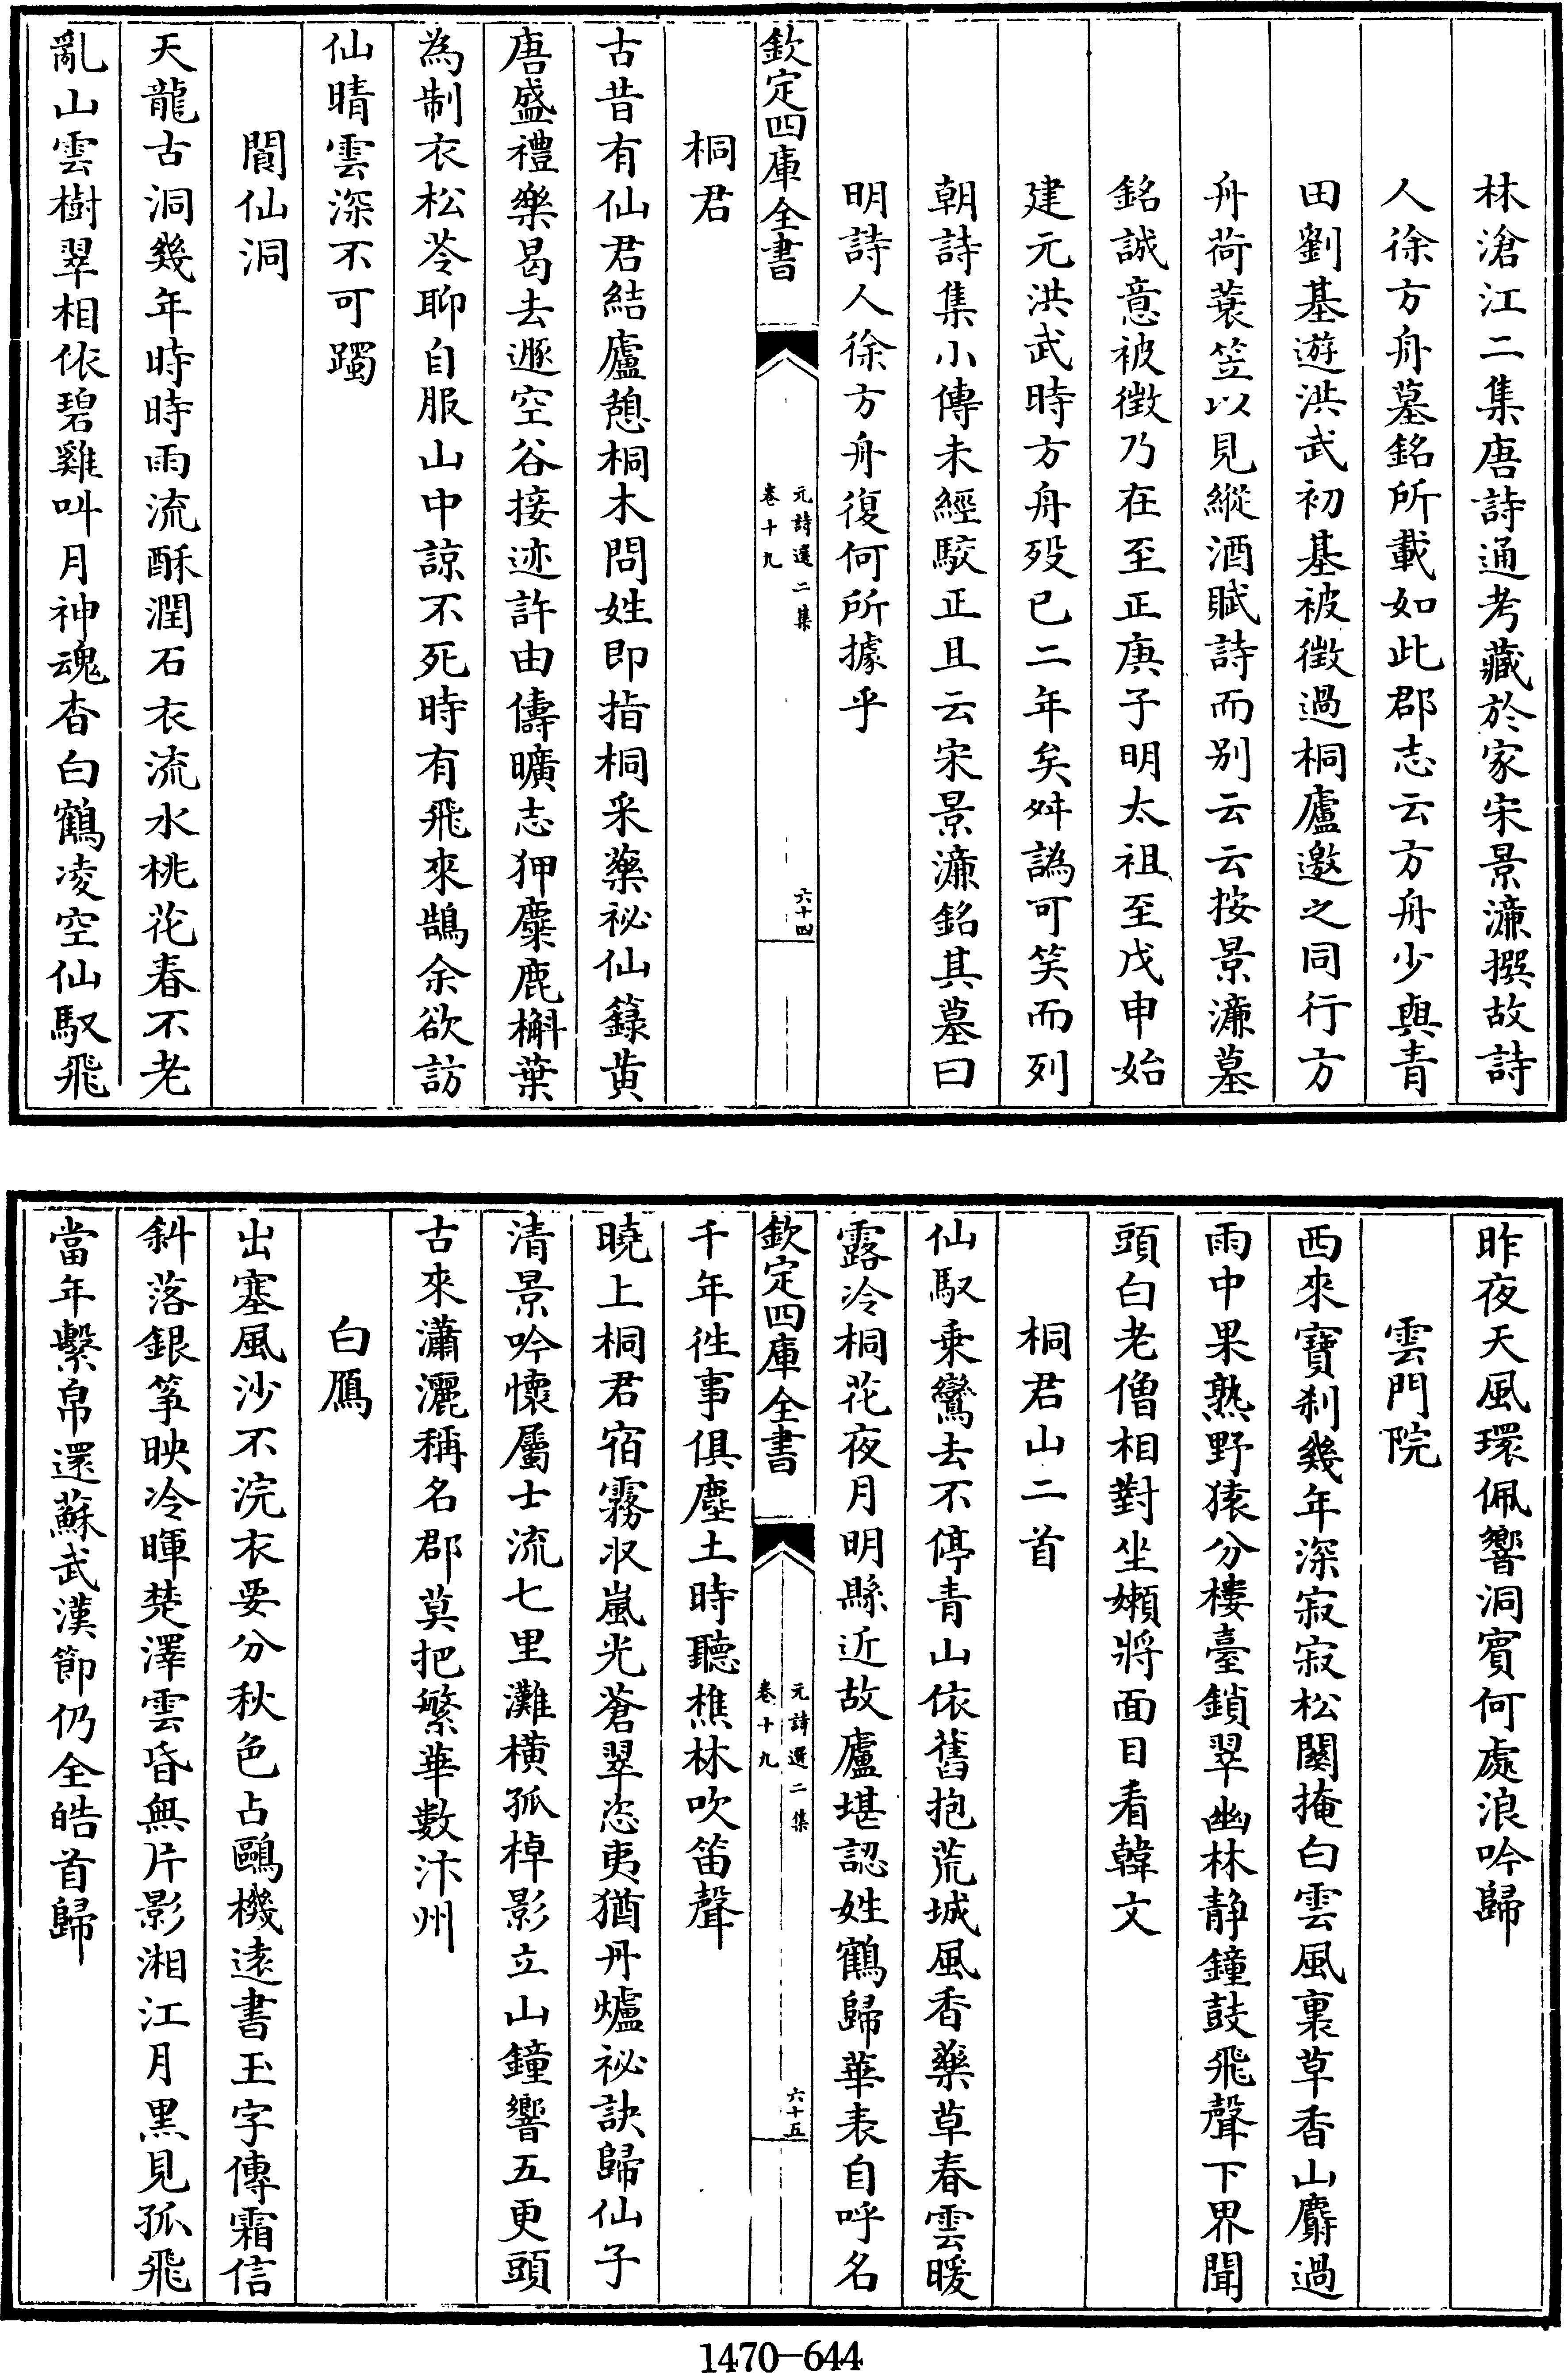 林滄江二集唐詩通考藏於家宋景濂撰故詩
人徐方舟墓銘所載如此郡志云方舟少與青
田劉基遊洪武初基被徴過桐廬邀之同行方
舟荷蓑笠以見縱酒賦詩而别云云按景濂墓
銘誠意被徴乃在至正庚子明太祖至戊申始
建元洪武時方舟殁已二年矣舛譌可笑而列
朝詩集小傳未經駮正且云宋景濂銘其墓曰
明詩人徐方舟復何所據乎
欽定四庫全書
元詩選二集
卷十九
六十四
桐君
古昔有仙君結廬憩桐木問姓即指桐采藥祕仙籙黄
唐盛禮樂曷去遯空谷接迹許由儔曠志狎麋鹿槲葉
為制衣松苓聊自服山中諒不死時有飛來鵠余欲訪
仙晴雲深不可躅
閬仙洞
天龍古洞幾年時時雨流酥潤石衣流水桃花春不老
亂山雲樹翠相依碧雞叫月神魂杳白鶴凌空仙馭飛
昨夜天風環佩響洞賓何處浪吟歸
雲門院
西來寶刹幾年深寂寂松關掩白雲風裏草香山麝過
雨中果熟野猿分樓臺鎖翠幽林静鐘鼓飛聲下界聞
頭白老僧相對坐嬾將面目看韓文
桐君山二首
仙馭乗鸞去不停青山依舊抱荒城風香藥草春雲暖
露冷桐花夜月明縣近故廬堪認姓鶴歸華表自呼名
欽定四庫全書
元詩選二集
卷十九
六十五
千年徃事俱塵土時聽樵林吹笛聲
曉上桐君宿霧収嵐光蒼翠恣夷猶丹爐祕訣歸仙子
清景吟懷屬士流七里灘横孤棹影立山鐘響五更頭
古來瀟灑稱名郡莫把繁華數汴州
白鴈
出塞風沙不浣衣要分秋色占鷗機遠書玉字傳霜信
斜落銀筝映冷暉楚澤雲昏無片影湘江月黒見孤飛
當年繫帛還蘇武漢節仍全皓首歸
1470-644